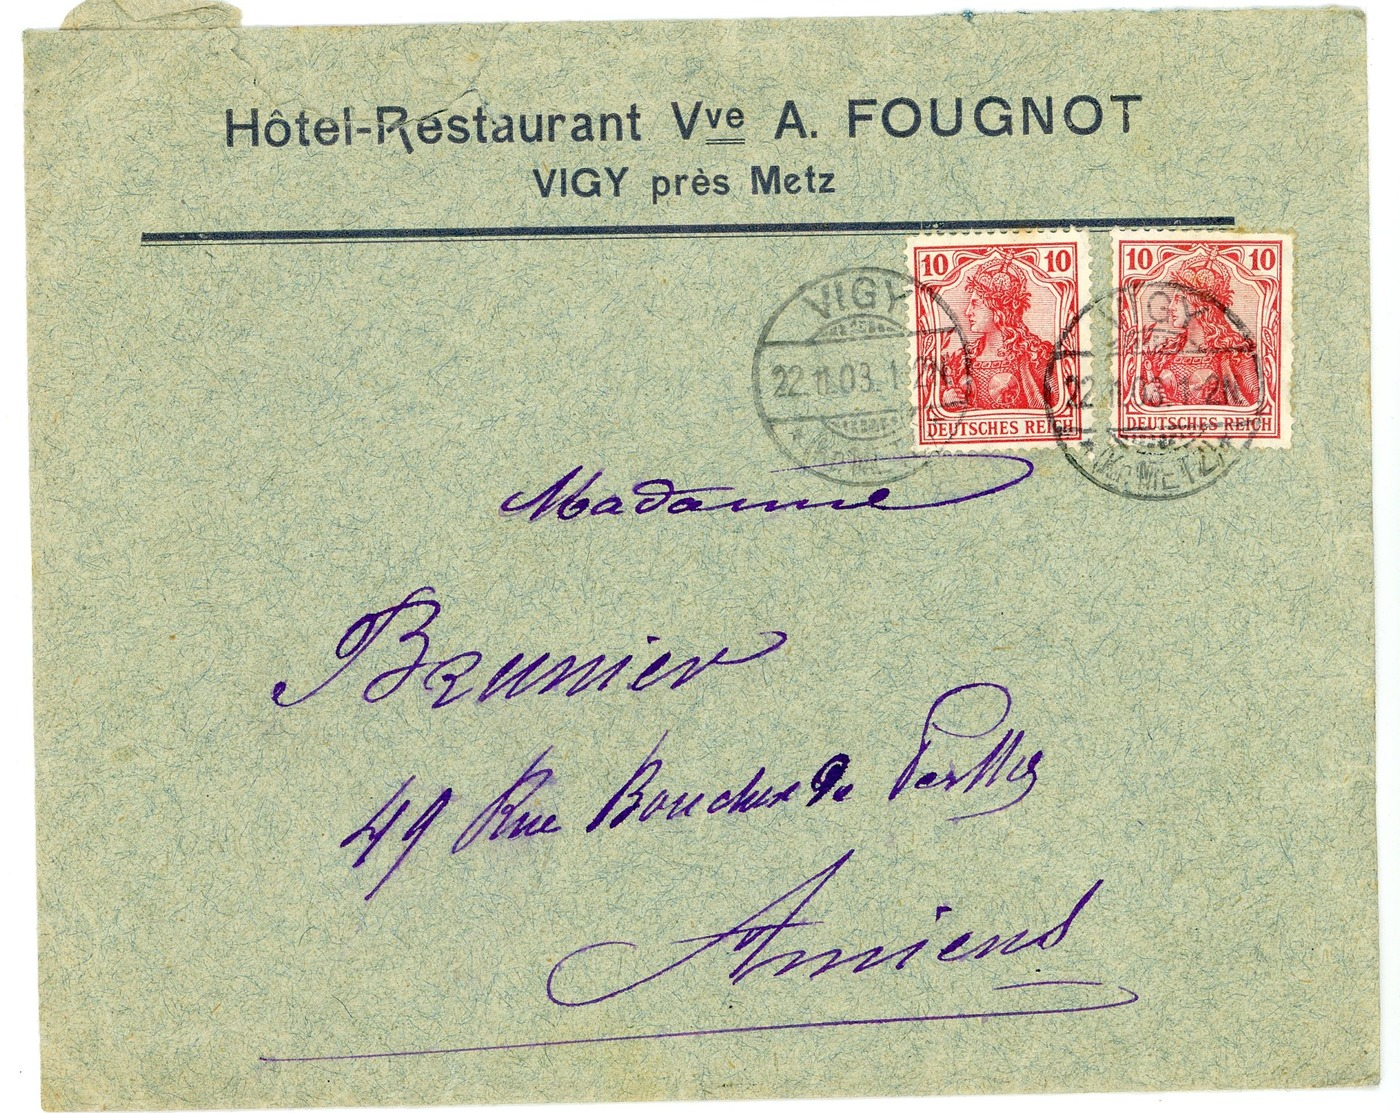 Hôtel-Restaurant Vve A. FOUGNOT
VIGY près Metz
10 10
DEUTSCHES REICH
10 10
DEUTSCHES REICH
VIGY
22.11.03. 1-2N
VIGY
22.11.03. 1-2N
* (Kr. METZ) *
Madame
Brunier
49 Rue Boucher de Perthes
Amiens